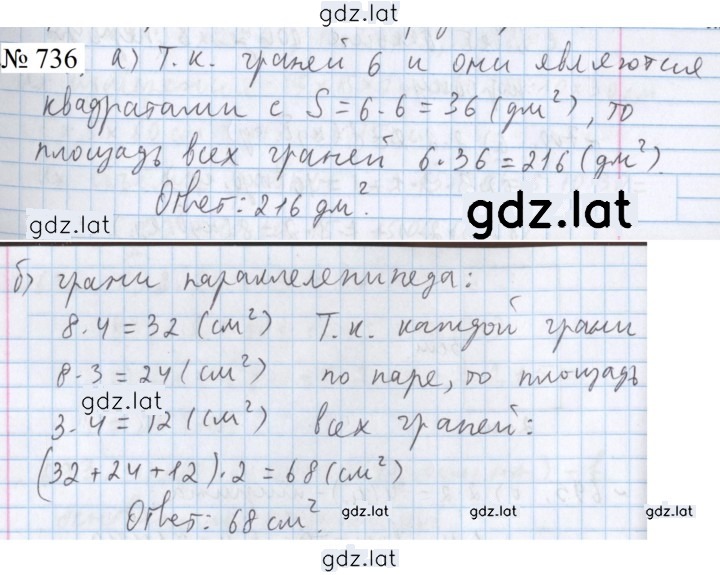 gdz.lat
№ 736 а) Т.к. граней 6 и они являются
квадратами с S = 6 · 6 = 36 (дм²), то
площадь всех граней 6 · 36 = 216 (дм²).
Ответ: 216 дм².
gdz.lat
gdz.lat
б) грани параллелепипеда:
8 · 4 = 32 (см²) Т.к. каждой грани
8 · 3 = 24 (см²) по паре, то площадь
gdz.lat
3 · 4 = 12 (см²) всех граней:
(32 + 24 + 12) · 2 = 68 (см²)
Ответ: 68 см².
gdz.lat gdz.lat gdz.lat
gdz.lat